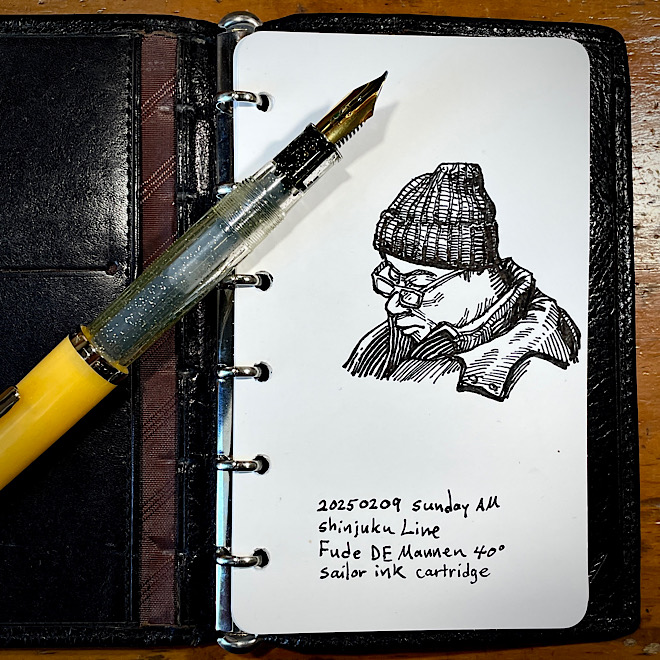 20250209 Sunday AM
Shinjuku Line
Fude DE Mannen 40°
Sailor ink cartridge